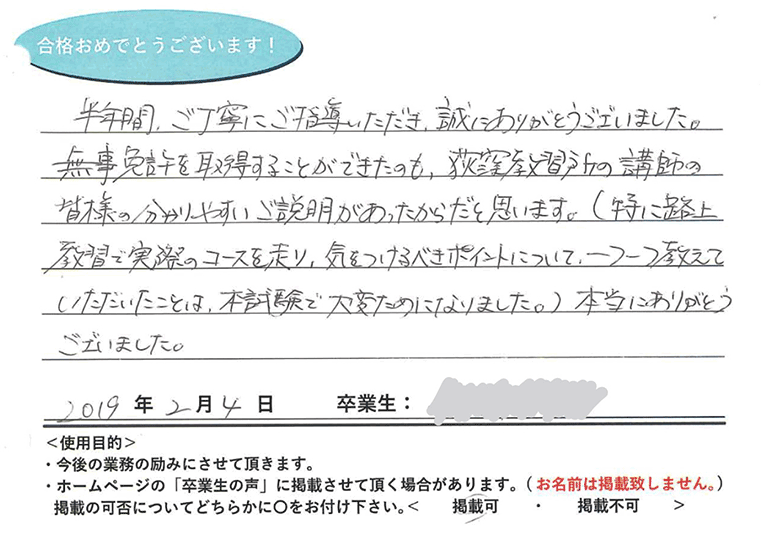 合格おめでとうございます！
半年間、ご丁寧にご指導いただき、誠にありがとうございました。
無事免許を取得することができたのも、荻窪教習所の講師の
皆様の分かりやすいご説明があったからだと思います。（特に路上
教習で実際のコースを走り、気をつけるべきポイントについて、一つ一つ教えて
いただいたことは、本試験で大変ためになりました。）本当にありがとう
ございました。
2019 年 2 月 4 日 卒業生：
＜使用目的＞
・今後の業務の励みにさせて頂きます。
・ホームページの「卒業生の声」に掲載させて頂く場合があります。（お名前は掲載致しません。）
掲載の可否についてどちらかに〇をお付け下さい。＜ 掲載可 ・ 掲載不可 ＞